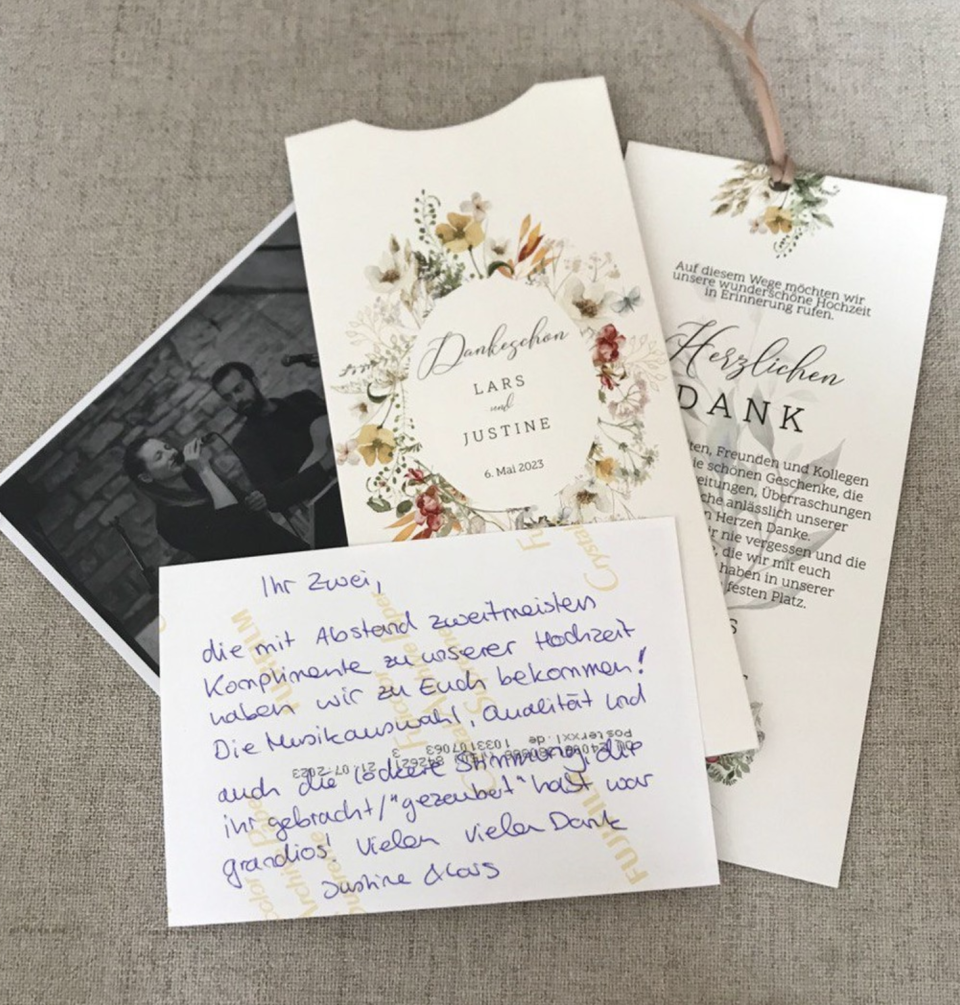 Dankeschön
LARS
und
JUSTINE
6. Mai 2023
Auf diesem Wege möchten wir
unsere wunderschöne Hochzeit
in Erinnerung rufen.
Herzlichen
DANK
ten, Freunden und Kollegen
ie schönen Geschenke, die
eitungen, Überraschungen
che anlässlich unserer
n Herzen Danke.
r nie vergessen und die
, die wir mit euch
haben in unserer
festen Platz.
S
Ihr Zwei,
die mit Abstand zweitmeisten
Komplimente zu unserer Hochzeit
haben wir zu Euch bekommen!
Die Musikauswahl, Qualität und
auch die lockere Stimmung, die
ihr gebracht/"gezaubert" habt war
grandios! Vielen vielen Dank
Justine & Lars
Posterxxl.de 1033107063 3
84262 21-07-2023
FUJIFILM
Fujicolor
Crystal
Archive Paper
Supreme
FUJIFILM